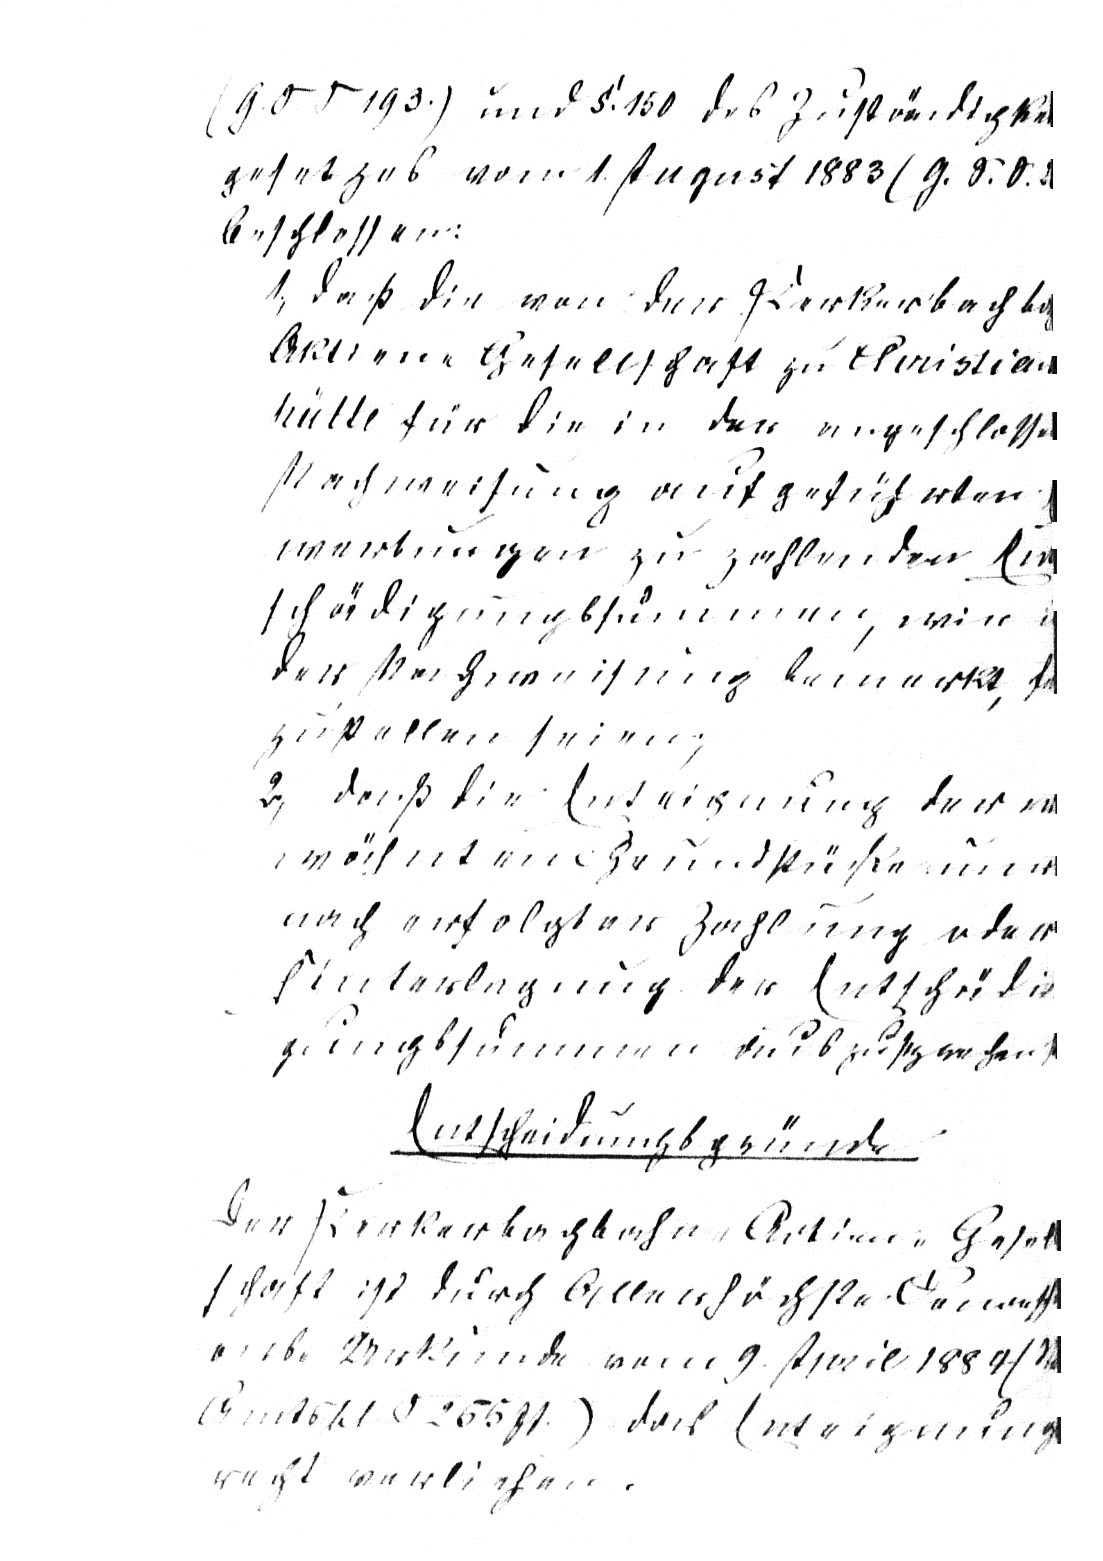 (G. S. S. 193.) und §. 150 des Zuständigkei
gesetzes vom 1. August 1883 (G. S. S. 2
beschlossen:
1, daß die von der Kerkerbachba
Aktien Gesellschaft zu Christian
hütte für die in der angeschlosse
Nachweisung aufgeführten
werbungen zu zahlenden Ent
schädigungssummen, wie
der Nachweisung bemerkt, fe
zustellen seien;
2, daß die Enteignung der er
wähnten Grundstücke nur
nach erfolgter Zahlung oder
Hinterlegung der Entschädi
gungssummen auszusprechen
Entscheidungsgründe
Der Kerkerbachbahn-Actien-Gesell
schaft ist durch Allerhöchste Concessi
ons-Urkunde vom 9. April 1884 (
Amtsbl. S 255 ff.) das Enteignung
recht verliehen.